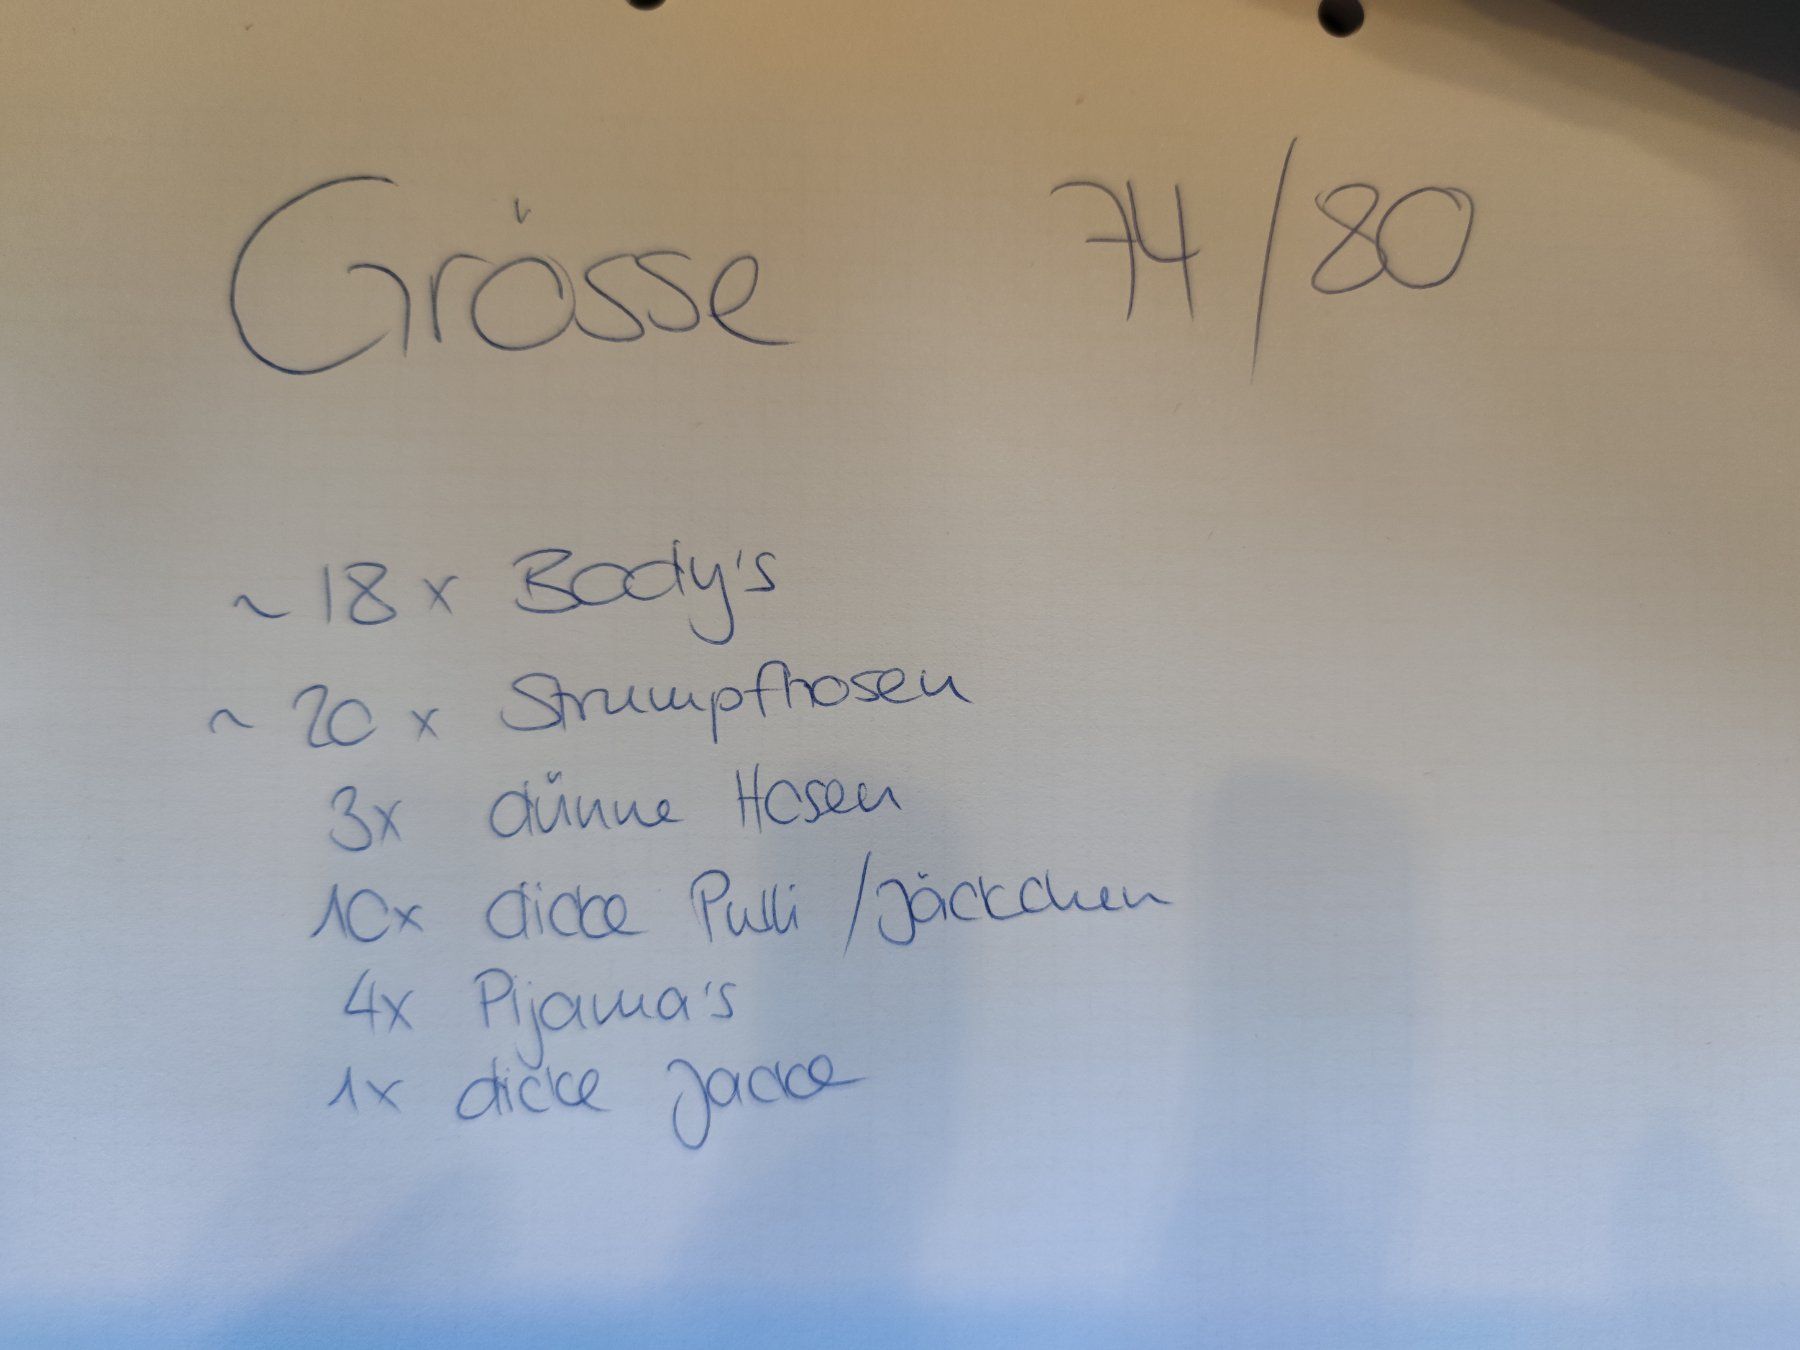 Grösse 74/80
~ 18 x Body's
~ 20 x Strumpfhosen
3x dünne Hosen
10x dicke Pulli / Jäckchen
4x Pijama's
1x dicke Jacke